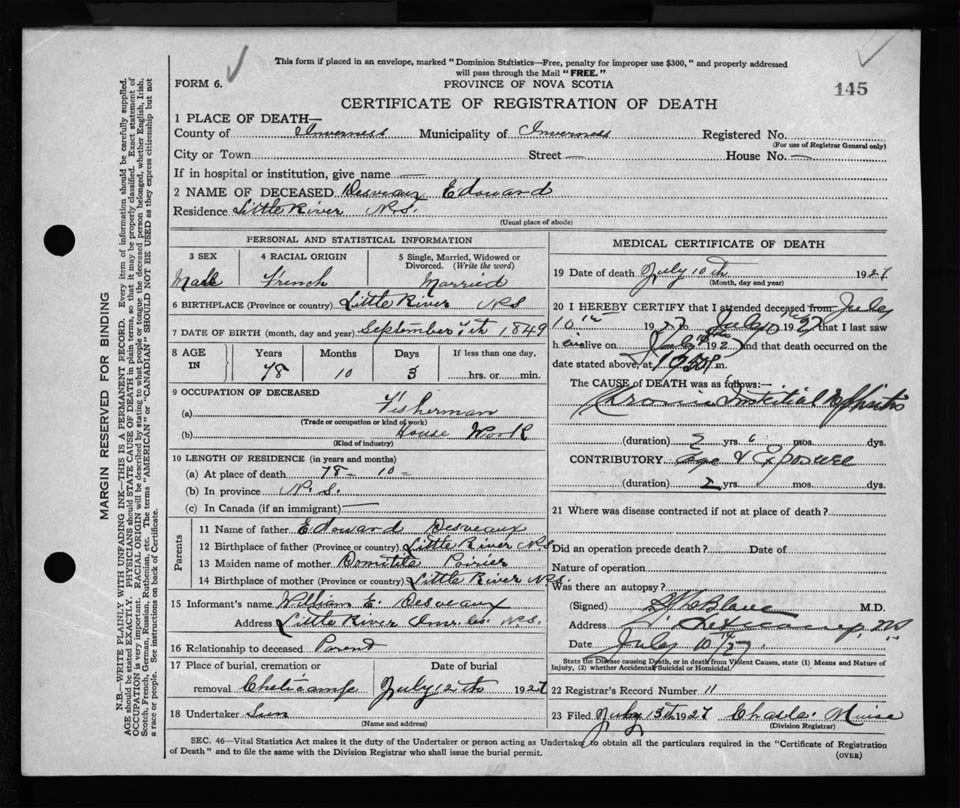 This form if placed in an envelope, marked "Dominion Statistics—Free, penalty for improper use $300," and properly addressed
will pass through the Mail "FREE."
FORM 6.
PROVINCE OF NOVA SCOTIA
145
CERTIFICATE OF REGISTRATION OF DEATH
1 PLACE OF DEATH—
County of Inverness Municipality of Inverness Registered No.
(For use of Registrar General only)
City or Town Street — House No. —
If in hospital or institution, give name —
2 NAME OF DECEASED Desveaux Edouard
Residence Little River N.S.
(Usual place of abode)
PERSONAL AND STATISTICAL INFORMATION
3 SEX 4 RACIAL ORIGIN 5 Single, Married, Widowed or
Divorced. (Write the word)
Male French Married
6 BIRTHPLACE (Province or country) Little River NS
7 DATE OF BIRTH (month, day and year) September 7th 1849
8 AGE IN Years Months Days If less than one day,
78 10 3 hrs. or min.
9 OCCUPATION OF DECEASED
(a) Fisherman
(Trade or occupation or kind of work)
(b) House Work
(Kind of industry)
10 LENGTH OF RESIDENCE (in years and months)
(a) At place of death 78 – 10 –
(b) In province N.S.
(c) In Canada (if an immigrant) —
Parents
11 Name of father Edouard Desveaux
12 Birthplace of father (Province or country) Little River NS
13 Maiden name of mother Domitile Poirier
14 Birthplace of mother (Province or country) Little River NS.
15 Informant's name William E. Desveaux
Address Little River Inv. Co. N.S.
16 Relationship to deceased Parent
17 Place of burial, cremation or Date of burial
removal Cheticamp July 12th 1927
18 Undertaker Sun
(Name and address)
MEDICAL CERTIFICATE OF DEATH
19 Date of death July 10th 1927
(Month, day and year)
20 I HEREBY CERTIFY that I attended deceased from July
10th 1927 to July 10 1927 that I last saw
h im alive on July 1927 and that death occurred on the
date stated above, at m.
The CAUSE of DEATH was as follows:—
Chronic Nephritis
(duration) yrs. 6 mos. dys.
CONTRIBUTORY Age & Exposure
(duration) 2 yrs. mos. dys.
21 Where was disease contracted if not at place of death?
Did an operation precede death? Date of
Nature of operation
Was there an autopsy?
(Signed) LeBlanc M.D.
Address Cheticamp, NS
Date July 10th/27
State the Disease causing Death, or in death from Violent Causes, state (1) Means and Nature of
Injury, (2) whether Accidental, Suicidal or Homicidal.
22 Registrar's Record Number 11
23 Filed July 1927 Charles Muise
(Division Registrar)
SEC. 46—Vital Statistics Act makes it the duty of the Undertaker or person acting as Undertaker to obtain all the particulars required in the "Certificate of Registration
of Death" and to file the same with the Division Registrar who shall issue the burial permit.
(OVER)
MARGIN RESERVED FOR BINDING
N.B.—WRITE PLAINLY WITH UNFADING INK—THIS IS A PERMANENT RECORD. Every item of information should be carefully supplied.
AGE should be stated EXACTLY. PHYSICIANS should STATE CAUSE OF DEATH in plain terms, so that it may be properly classified. Exact statement of
OCCUPATION is very important. RACIAL ORIGIN will be described by stating to what people or tongue the deceased person belonged, whether English, Irish,
Scotch, French, German, Russian, Ruthenian, etc. The terms "AMERICAN" or "CANADIAN" SHOULD NOT BE USED as they express citizenship but not
a race or people. See instructions on back of Certificate.